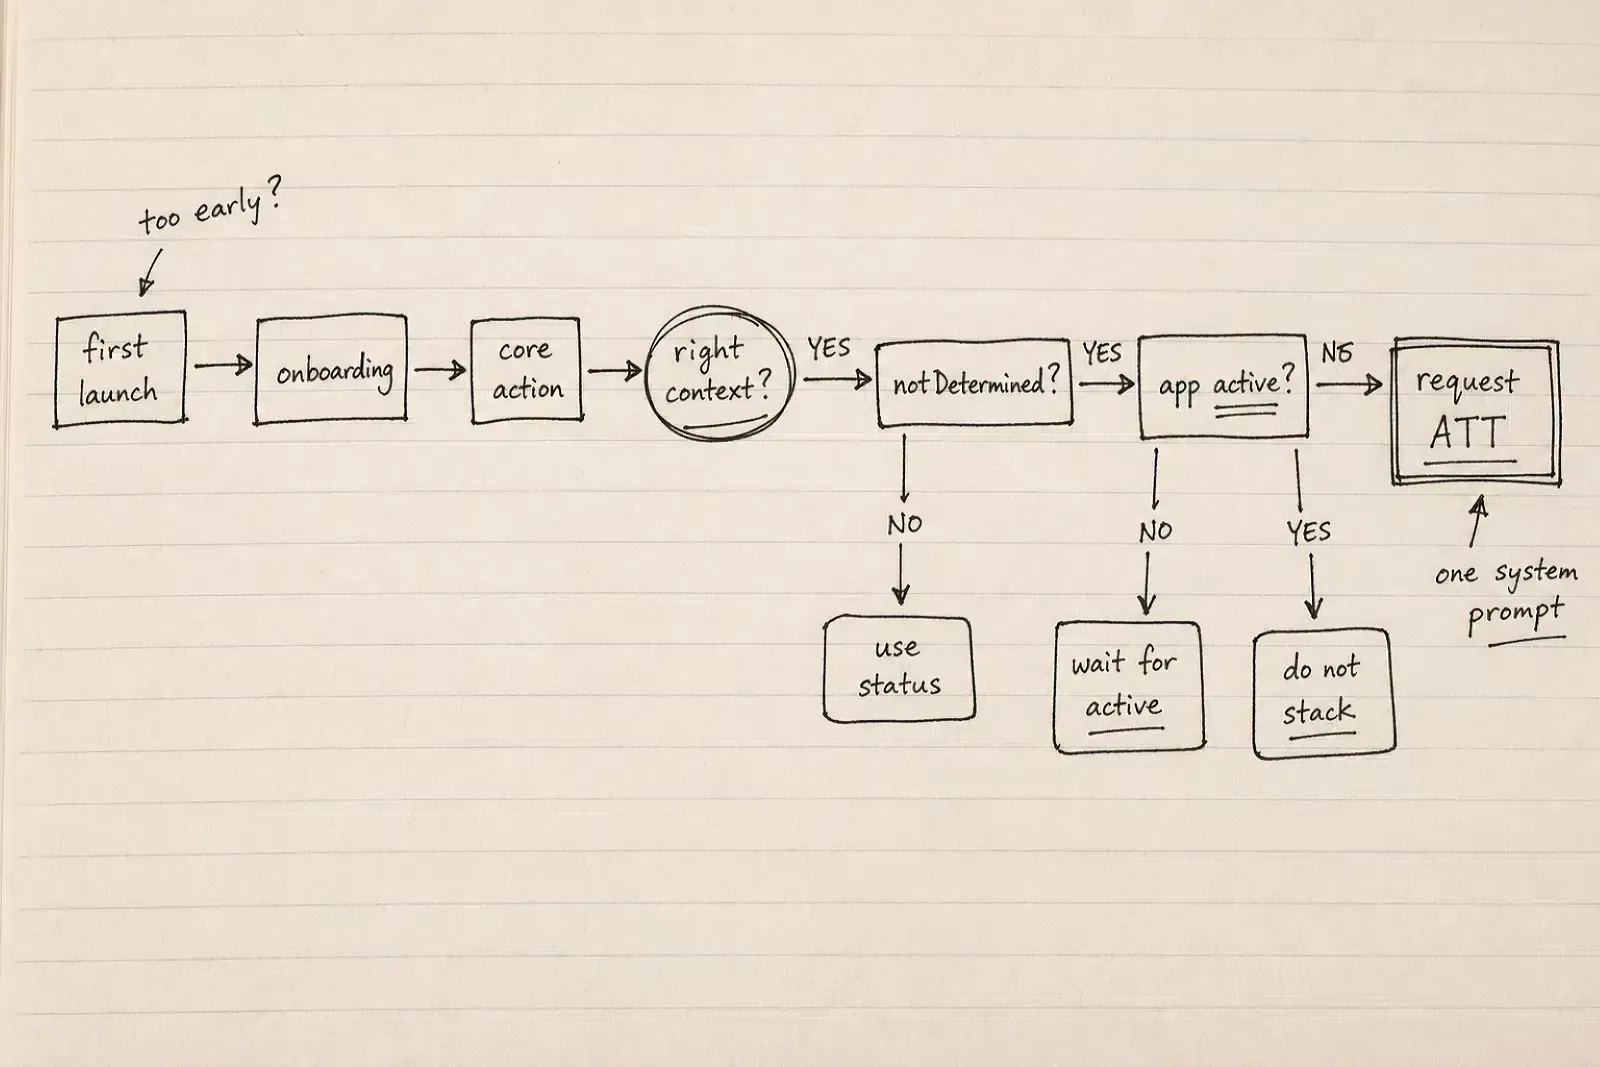 too early?
first
launch
onboarding
core
action
right
context?
YES
notDetermined?
YES
app active?
request
ATT
NO
NO
YES
one system
prompt
use
status
wait for
active
do not
stack